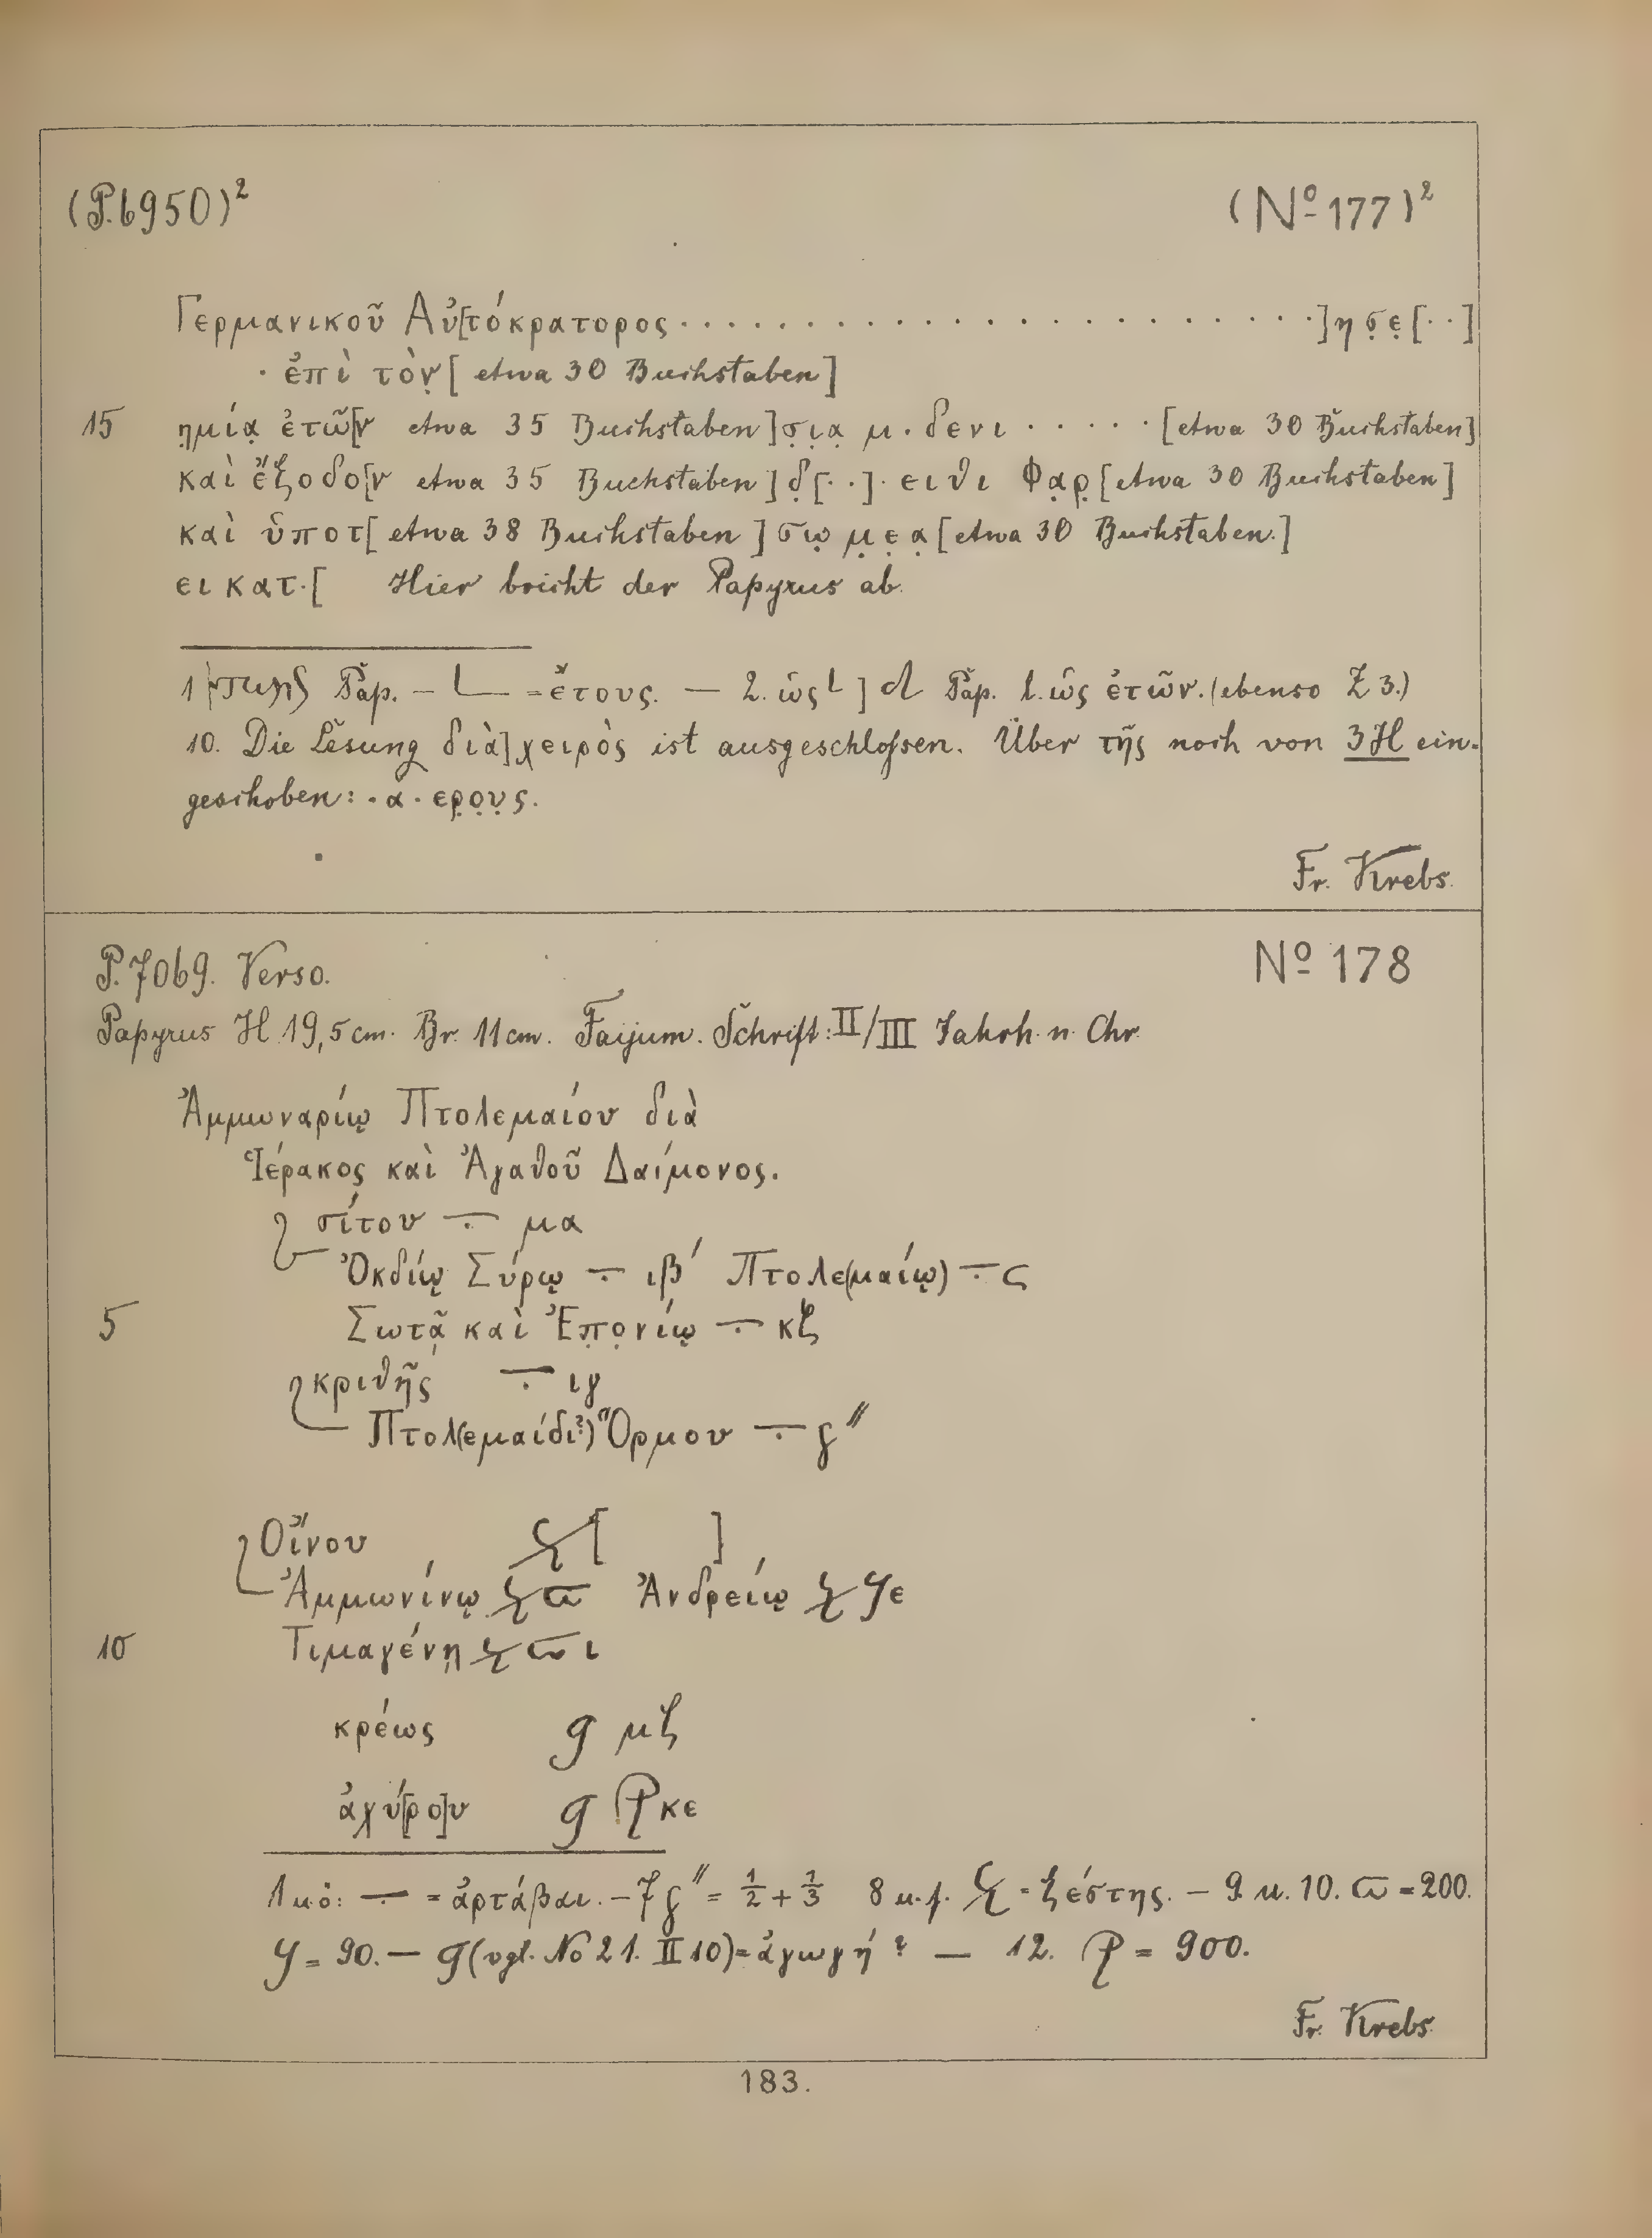 (P.6950)² (Nº 177)²
Γερμανικοῦ Αὐ[τόκρατορος . . . . . . . . . . . . . . . . . . . . . . . .]η σ̣ε̣[··]
· ἐπὶ τὸν̣[ etwa 30 Buchstaben]
15 η̣μία̣ ἐτῶ[ν etwa 35 Buchstaben]σ̣ι̣α̣ μ · δενι · · · · · [etwa 30 Buchstaben]
καὶ ἔξοδο[ν etwa 35 Buchstaben] δ̣[··]· ειθι Φα̣ρ̣[etwa 30 Buchstaben]
καὶ ὑποτ[ etwa 38 Buchstaben ] σω̣ μ̣ε̣α̣[etwa 30 Buchstaben.]
ει κατ·[ Hier bricht der Papyrus ab.
1 Pap. – L = ἔτους. — 2. ὡς L ] Pap. l. ὡς ἐτῶν. (ebenso Z 3.)
10. Die Lesung διὰ] χειρὸς ist ausgeschlossen. Über τῆς noch von 3 H ein-
geschoben: · α · ερ̣ο̣υ̣ς.
Fr. Krebs.
P. 7069. Verso. Nº 178
Papyrus H. 19,5 cm. Br. 11 cm. Faijum. Schrift: II/III Jahrh. n. Chr.
Ἀμμωναρίῳ Πτολεμαίου διὰ
Ἱέρακος καὶ Ἀγαθοῦ Δαίμονος.
σίτου ÷ μα
Ὀκδίῳ Σύρῳ ÷ ιβ´ Πτολε(μαίῳ) ÷ ς
5 Σωτᾷ καὶ Ἐπ̣ο̣νίῳ ÷ κζ
κριθῆς ÷ ιγ
Πτολ(εμαίδι?) Ὅρμου ÷ ϛ´´
Οἴνου [ ]
Ἀμμωνίνῳ ϖ Ἀνδρείῳ ϥε
10 Τιμαγένῃ ϖ ι
κρέως g μζ
ἀχύ[ρο]υ g ϡκε
1 u. ö: ÷ = ἀρτάβαι. – 7 ϛ´´ = ½ + ⅓ 8 u. f. = ξέστης. – 9 u. 10. ϖ = 200.
ϥ = 90. — g (vgl. No 21. II 10) = ἀγωγή? — 12. ϡ = 900.
Fr. Krebs.
183.